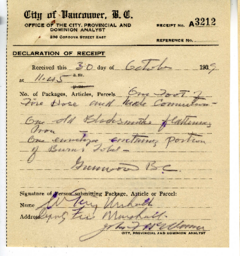 City of Vancouver, B. C.
OFFICE OF THE CITY, PROVINCIAL AND
DOMINION ANALYST
236 CORDOVA STREET EAST
RECEIPT No. A3212
REFERENCE No.
DECLARATION OF RECEIPT
Received this 30 day of October 193
at 11.45
No. of Packages, Articles, Parcels. One Foot of
Fire Hose and Connection
One old Blacksmiths
Iron
One envelope containing portion
of Burnt
Signature of Person submitting Package, Article or Parcel:
Address Marshall.
CITY, PROVINCIAL AND DOMINION ANALYST